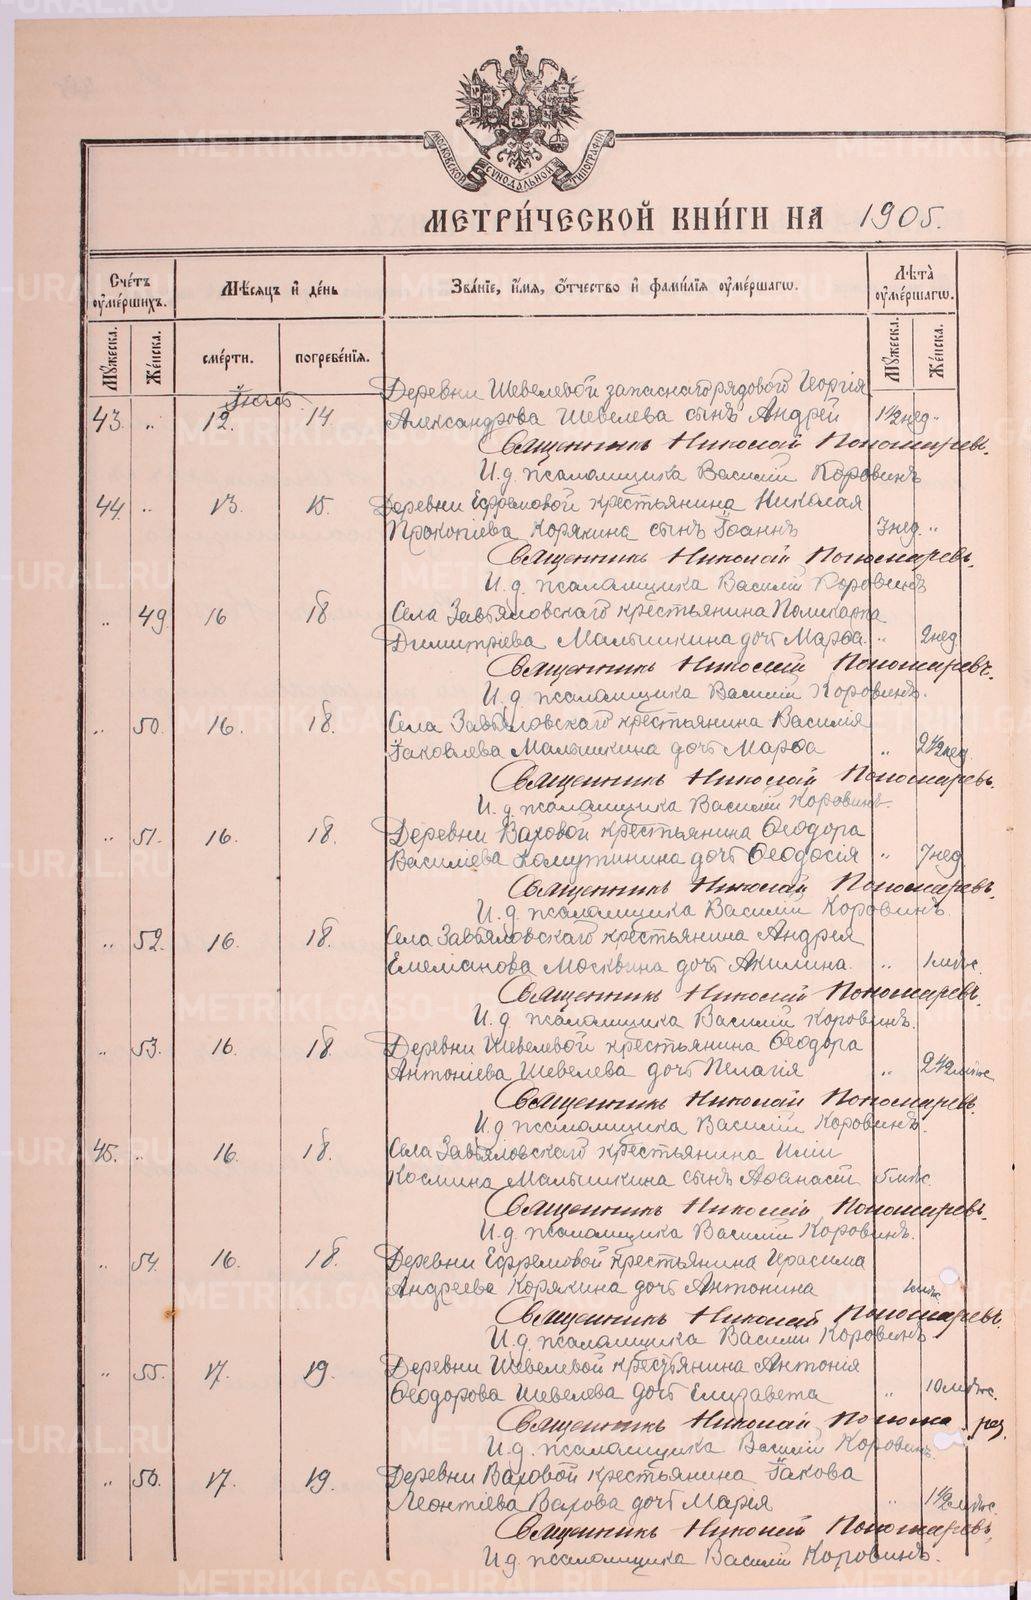 МОСКОВСКОЙ СѴНОДАЛЬНОЙ ТИПОГРАФІИ
МЕТРИ́ЧЕСКОЙ КНИ́ГИ НА 1905.
Сче́тъ ᲂу҆ме́ршихъ.
Мѣ́сѧцъ и҆ де́нь
Зва́нїе, и҆́мѧ, ѻ҆́тчество и҆ фами́лїѧ ᲂу҆ме́ршагѡ.
Лѣта̀ ᲂу҆ме́ршагѡ.
Мꙋ́жеска. Же́нска. сме́рти. погребе́нїѧ. Мꙋ́жеска. Же́нска.
Іюль
Деревни Шевелевой запаснаго рядового Георгія
43. " 12. 14 Александрова Шевелева сынъ Андрей 1 1/2 нед "
Священникъ Николай Пономаревъ.
И. д. псаломщика Василій Коровинъ
44. " 13. 15. Деревни Ефремовой крестьянина Николая
Прокопіева Корякина сынъ Іоаннъ 3 нед. "
Священникъ Николай Пономаревъ.
И. д. псаломщика Василій Коровинъ
" 49 16 18 Села Завьяловскаго крестьянина Поликарпа
Димитріева Малышкина дочь Марѳа. " 2 нед
Священникъ Николай Пономаревъ.
И. д. псаломщика Василій Коровинъ.
" 50. 16. 18. Села Завьяловскаго крестьянина Василія
Іаковлева Малышкина дочь Марѳа " 2 1/2 нед.
Священникъ Николай Пономаревъ.
И. д. псаломщика Василій Коровинъ.
" 51. 16. 18. Деревни Ваховой крестьянина Ѳеодора
Василіева Хомутинина дочь Ѳеодосія " 7 нед
Священникъ Николай Пономаревъ.
И. д. псаломщика Василій Коровинъ.
" 52. 16. 18. Села Завьяловскаго крестьянина Андрея
Емеліанова Москвина дочь Акилина. " 1 мѣс.
Священникъ Николай Пономаревъ.
И. д. псаломщика Василій Коровинъ.
" 53. 16. 18. Деревни Шевелевой крестьянина Ѳеодора
Антоніева Шевелева дочь Пелагія " 2 1/2 мѣс
Священникъ Николай Пономаревъ.
И. д. псаломщика Василій Коровинъ.
45. " 16. 18. Села Завьяловскаго крестьянина Иліи
Космина Малышкина сынъ Аѳанасій 5 мѣс.
Священникъ Николай Пономаревъ.
И. д. псаломщика Василій Коровинъ.
" 54. 16. 18. Деревни Ефремовой крестьянина Герасима
Андреева Корякина дочь Антонина 1 мѣс.
Священникъ Николай Пономаревъ.
И. д. псаломщика Василій Коровинъ
" 55. 17. 19. Деревни Шевелевой крестьянина Антонія
Ѳеодорова Шевелева дочь Елизавета " 10 мѣс.
Священникъ Николай Понома рев.
И. д. псаломщика Василій Коровинъ.
" 56. 17. 19. Деревни Ваховой крестьянина Іакова
Леонтіева Вахова дочь Марія " 1 1/2 мѣс.
Священникъ Николай Пономаревъ.
И. д. псаломщика Василій Коровинъ.
METRIKI.GASO-URAL.RU